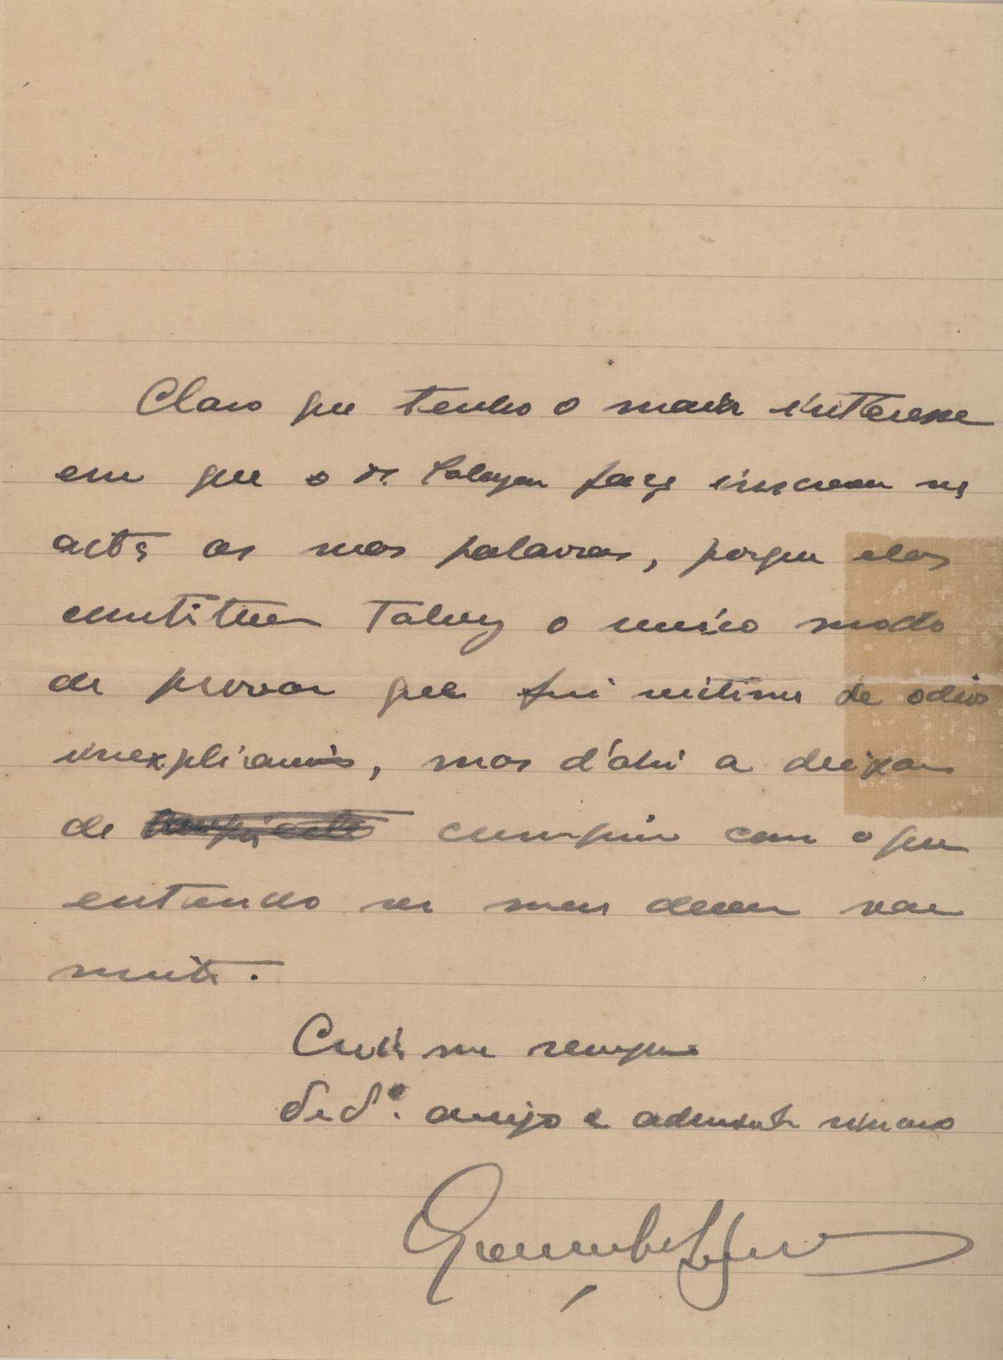 Claro que tenho o maior interesse
em que o dr. faça inscrever na
acta as suas palavras, porque elas
constituem talvez o unico modo
de provar que fui vitima de odios
inexplicaveis, mas d'ahi a deixar
de cumprir com o que
entendo ser meu dever vae
muito.
Creia me sempre
Dedº. amigo e admirador sincero